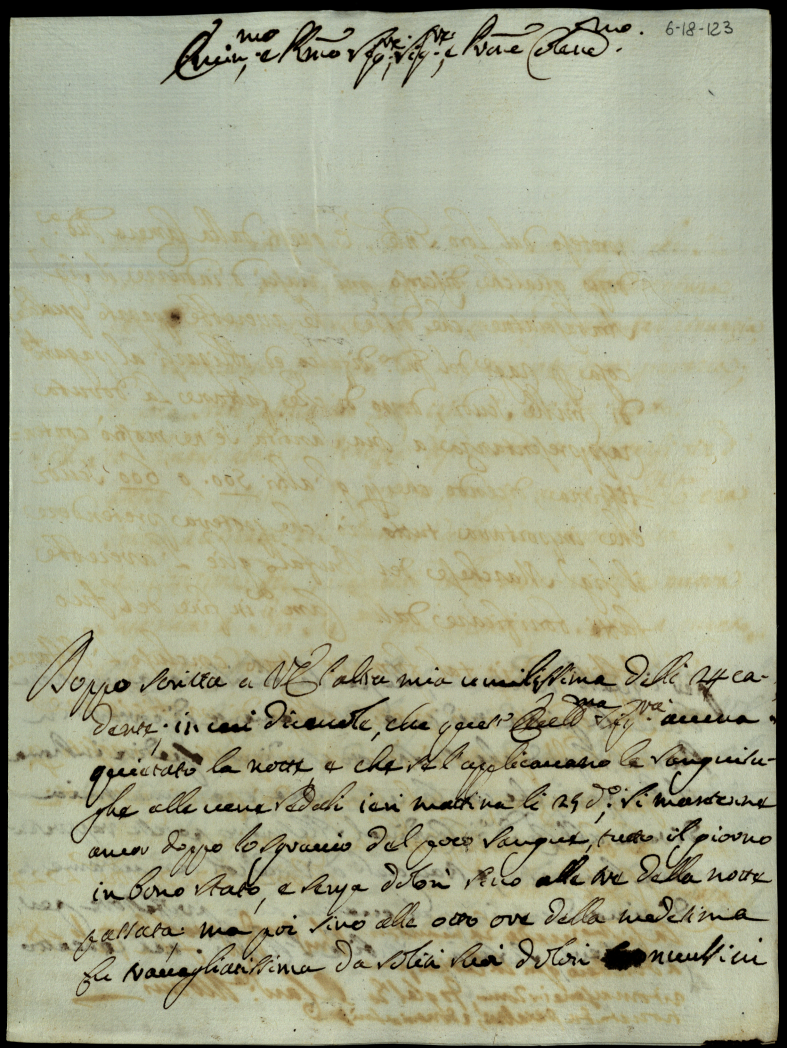 6-18-123
Emin.mo e Rmo Sig.re, Sig.re, e Prone Colen.mo.
Doppo scritta a VE l'altra mia umilissima delli 24 ca-
dente, in cui dicevole, che questa Ecell.ma Sig.ra aveva
quietato la notte, e che se l'applicavano le sanguisu-
ghe alle vene sedali ieri mattina li 25 d.o, si mantenne
anco doppo lo sgravio del poco sangue, tutto il giorno
in bono stato, e senza dolori sino alle tre della notte
passata, ma poi sino alle otto ore della medesima
fu travagliatissima da soliti suoi dolori